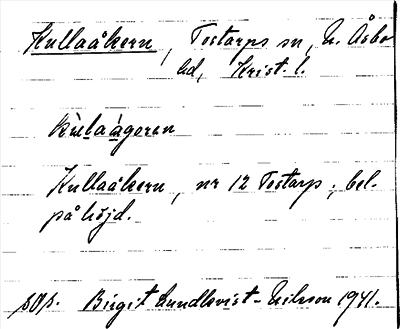 Kullaåkern, Tostarps sn, N. Åsbo
hd, Krist. l.
kùlaágoran
Kullaåkern, nr 12 Tostarp; bel.
på höjd.
Birgit Lundkvist-Nilsson 1941.